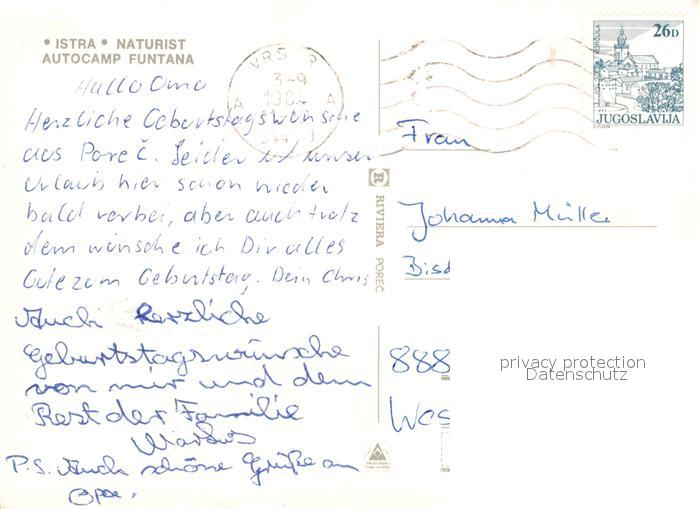 • ISTRA • NATURIST
AUTOCAMP FUNTANA
Hallo Oma
Herzliche Geburtstagswünsche
aus Poreč. Leider ist unser
Urlaub hier schon wieder
bald vorbei, aber auch trotz
dem wünsche ich Dir alles
Gute zum Geburtstag. Dein Chris
Auch herzliche
Geburtstagswünsche
von mir und dem
Rest der Familie
Markus
P.S. Auch schöne Grüße an
Opa.
VRS
3-9
RIVIERA POREČ
26D
JUGOSLAVIJA
Frau
Johanna Müller
888
privacy protection
Datenschutz